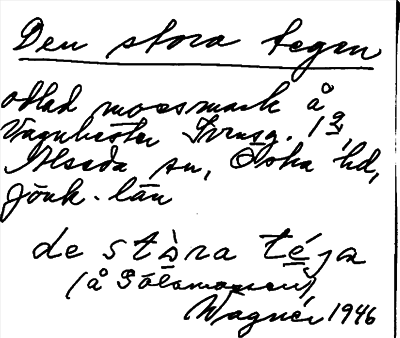 Den stora tegen
odlad mossmark å
Vagnhester Svensg. 1 2,
Alseda sn, Östra hd,
Jönk. län
de stòra téja
(å Sólamossen)
Wagner 1946